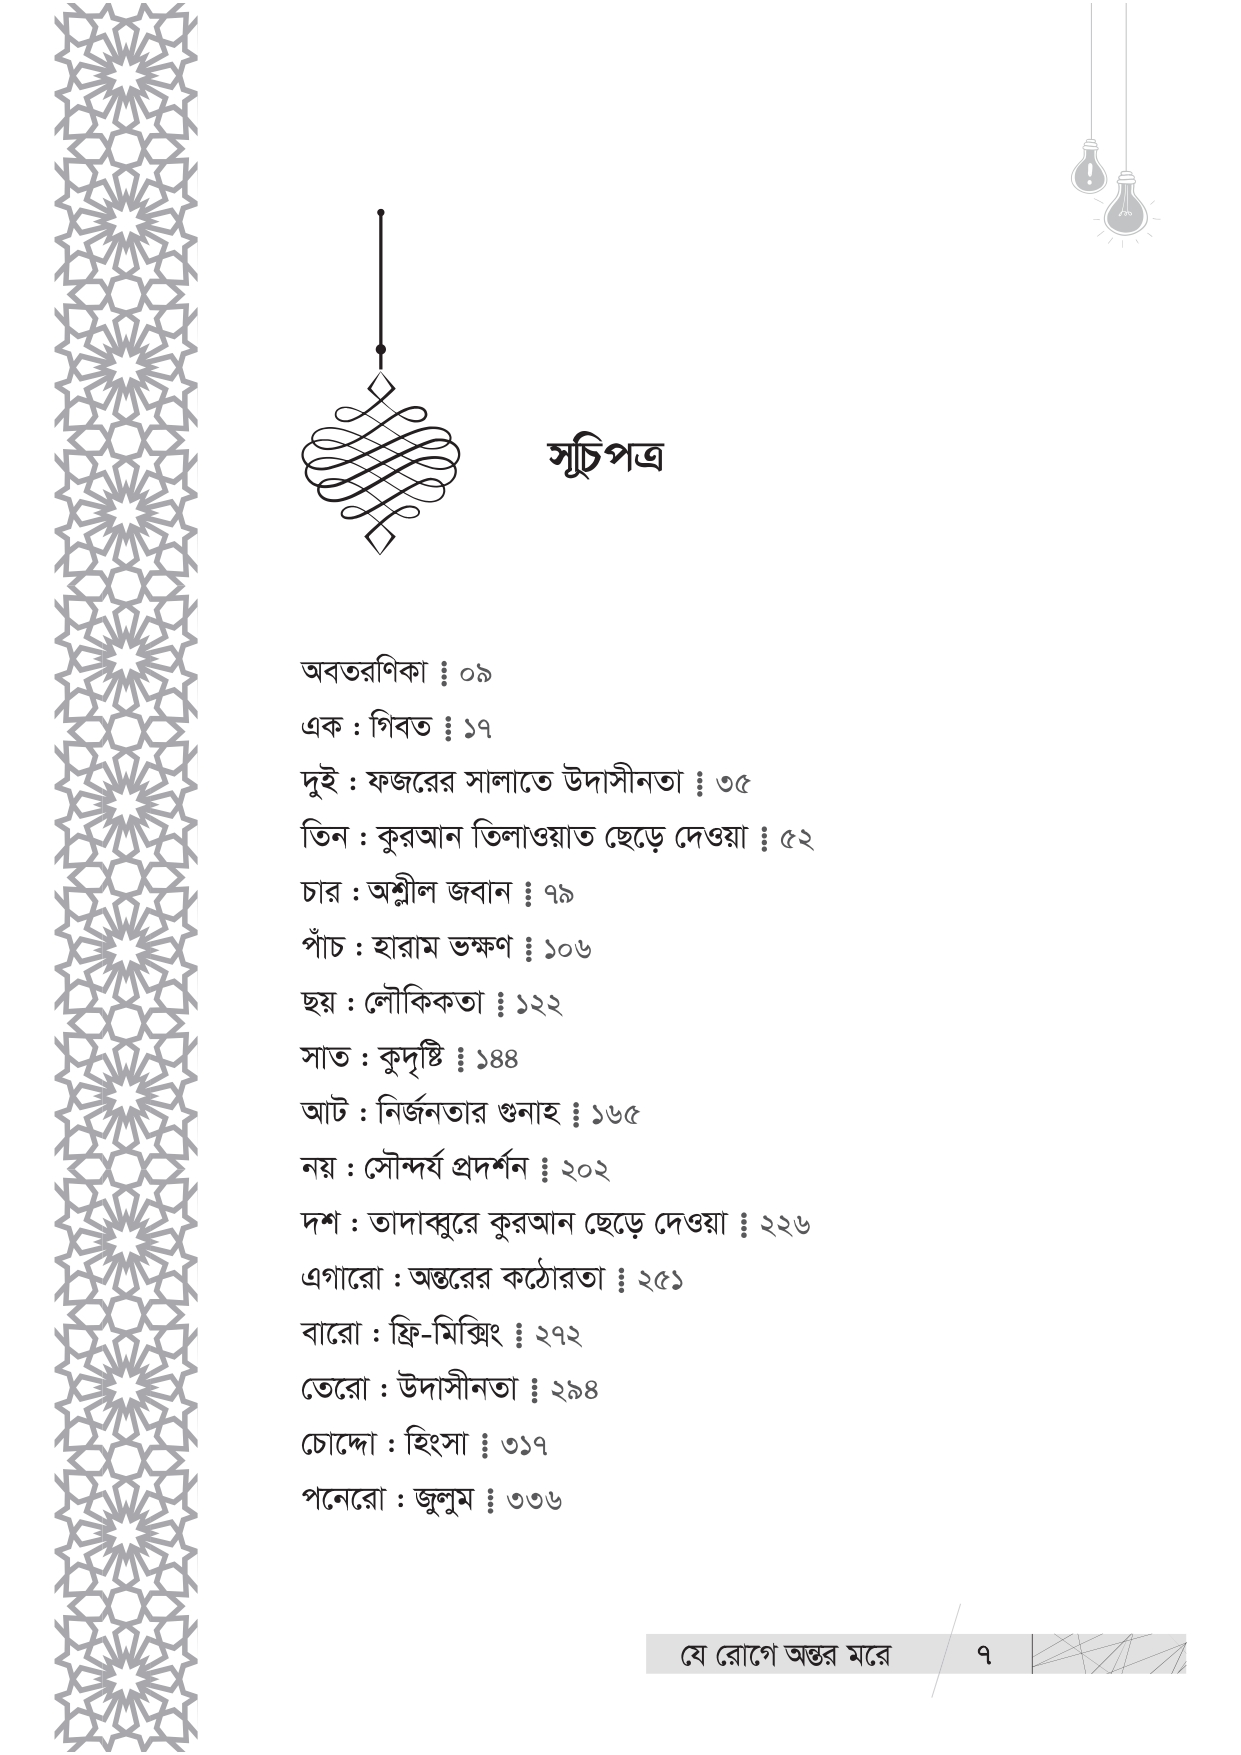 সূচিপত্র
অবতরণিকা ⁞ ০৯
এক : গিবত ⁞ ১৭
দুই : ফজরের সালাতে উদাসীনতা ⁞ ৩৫
তিন : কুরআন তিলাওয়াত ছেড়ে দেওয়া ⁞ ৫২
চার : অশ্লীল জবান ⁞ ৭৯
পাঁচ : হারাম ভক্ষণ ⁞ ১০৬
ছয় : লৌকিকতা ⁞ ১২২
সাত : কুদৃষ্টি ⁞ ১৪৪
আট : নির্জনতার গুনাহ ⁞ ১৬৫
নয় : সৌন্দর্য প্রদর্শন ⁞ ২০২
দশ : তাদাব্বুরে কুরআন ছেড়ে দেওয়া ⁞ ২২৬
এগারো : অন্তরের কঠোরতা ⁞ ২৫১
বারো : ফ্রি-মিক্সিং ⁞ ২৭২
তেরো : উদাসীনতা ⁞ ২৯৪
চোদ্দো : হিংসা ⁞ ৩১৭
পনেরো : জুলুম ⁞ ৩৩৬
যে রোগে অন্তর মরে ৭